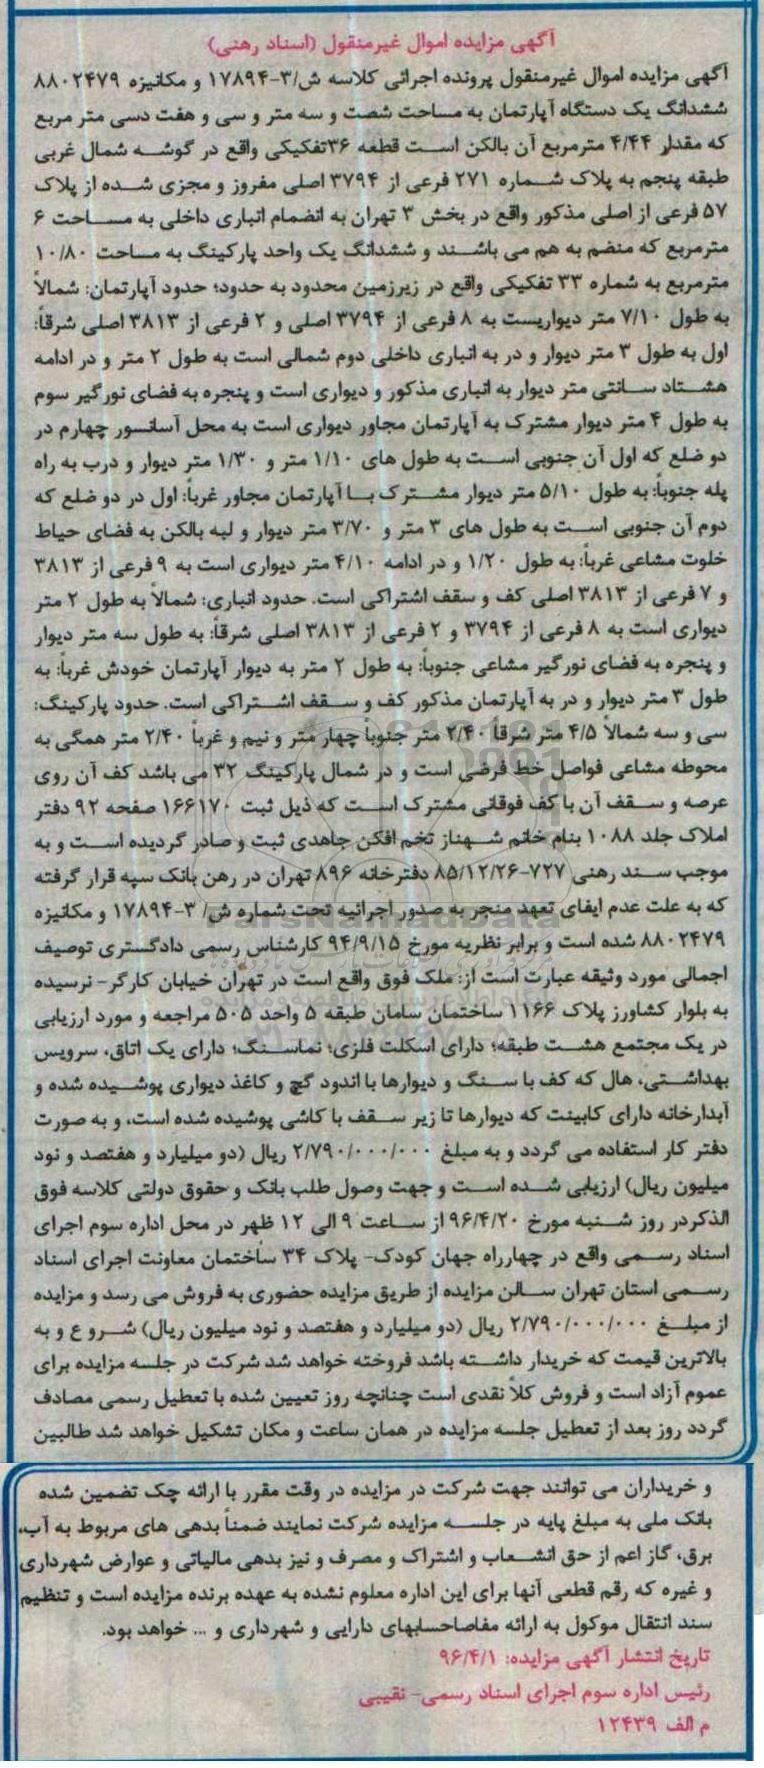 آگهی مزایده اموال غیرمنقول (اسناد رهنی)
آگهی مزایده اموال غیرمنقول پرونده اجرائی کلاسه ش/۳-۱۷۸۹۴ و مکانیزه ۸۸۰۲۴۷۹
ششدانگ یک دستگاه آپارتمان به مساحت شصت و سه متر و سی و هفت دسی متر مربع
که مقدار ۴/۴۴ مترمربع آن بالکن است قطعه ۳۶تفکیکی واقع در گوشه شمال غربی
طبقه پنجم به پلاک شماره ۲۷۱ فرعی از ۳۷۹۴ اصلی مفروز و مجزی شده از پلاک
۵۷ فرعی از اصلی مذکور واقع در بخش ۳ تهران به انضمام انباری داخلی به مساحت ۶
مترمربع که منضم به هم می باشند و ششدانگ یک واحد پارکینگ به مساحت ۱۰/۸۰
مترمربع به شماره ۳۳ تفکیکی واقع در زیرزمین محدود به حدود؛ حدود آپارتمان: شمالاً
به طول ۷/۱۰ متر دیواریست به ۸ فرعی از ۳۷۹۴ اصلی و ۲ فرعی از ۳۸۱۳ اصلی شرقاً:
اول به طول ۳ متر دیوار و در به انباری داخلی دوم شمالی است به طول ۲ متر و در ادامه
هشتاد سانتی متر دیوار به انباری مذکور و دیواری است و پنجره به فضای نورگیر سوم
به طول ۴ متر دیوار مشترک به آپارتمان مجاور دیواری است به محل آسانسور چهارم در
دو ضلع که اول آن جنوبی است به طول های ۱/۱۰ متر و ۱/۳۰ متر دیوار و درب به راه
پله جنوباً: به طول ۵/۱۰ متر دیوار مشترک با آپارتمان مجاور غرباً: اول در دو ضلع که
دوم آن جنوبی است به طول های ۳ متر و ۳/۷۰ متر دیوار و لبه بالکن به فضای حیاط
خلوت مشاعی غرباً: به طول ۱/۲۰ و در ادامه ۴/۱۰ متر دیواری است به ۹ فرعی از ۳۸۱۳
و ۷ فرعی از ۳۸۱۳ اصلی کف و سقف اشتراکی است. حدود انباری: شمالاً به طول ۲ متر
دیواری است به ۸ فرعی از ۳۷۹۴ و ۲ فرعی از ۳۸۱۳ اصلی شرقاً: به طول سه متر دیوار
و پنجره به فضای نورگیر مشاعی جنوباً: به طول ۲ متر به دیوار آپارتمان خودش غرباً: به
طول ۳ متر دیوار و در به آپارتمان مذکور کف و سقف اشتراکی است. حدود پارکینگ:
سی و سه شمالاً ۴/۵ متر شرقاً ۲/۴۰ متر جنوباً چهار متر و نیم و غرباً ۲/۴۰ متر همگی به
محوطه مشاعی فواصل خط فرضی است و در شمال پارکینگ ۳۲ می باشد کف آن روی
عرصه و سقف آن با کف فوقانی مشترک است که ذیل ثبت ۱۶۶۱۷۰ صفحه ۹۲ دفتر
املاک جلد ۱۰۸۸ بنام خانم شهناز تخم افکن جاهدی ثبت و صادر گردیده است و به
موجب سند رهنی ۷۲۷-۸۵/۱۲/۲۶ دفترخانه ۸۹۶ تهران در رهن بانک سپه قرار گرفته
که به علت عدم ایفای تعهد منجر به صدور اجرائیه تحت شماره ش/ ۳-۱۷۸۹۴ و مکانیزه
۸۸۰۲۴۷۹ شده است و برابر نظریه مورخ ۹۴/۹/۱۵ کارشناس رسمی دادگستری توصیف
اجمالی مورد وثیقه عبارت است از: ملک فوق واقع است در تهران خیابان کارگر- نرسیده
به بلوار کشاورز پلاک ۱۱۶۶ ساختمان سامان طبقه ۵ واحد ۵۰۵ مراجعه و مورد ارزیابی
در یک مجتمع هشت طبقه؛ دارای اسکلت فلزی؛ نماسنگ؛ دارای یک اتاق، سرویس
بهداشتی، هال که کف با سنگ و دیوارها با اندود گچ و کاغذ دیواری پوشیده شده و
آبدارخانه دارای کابینت که دیوارها تا زیر سقف با کاشی پوشیده شده است، و به صورت
دفتر کار استفاده می گردد و به مبلغ ۲/۷۹۰/۰۰۰/۰۰۰ ریال (دو میلیارد و هفتصد و نود
میلیون ریال) ارزیابی شده است و جهت وصول طلب بانک و حقوق دولتی کلاسه فوق
الذکردر روز شنبه مورخ ۹۶/۴/۲۰ از ساعت ۹ الی ۱۲ ظهر در محل اداره سوم اجرای
اسناد رسمی واقع در چهارراه جهان کودک- پلاک ۳۴ ساختمان معاونت اجرای اسناد
رسمی استان تهران سالن مزایده از طریق مزایده حضوری به فروش می رسد و مزایده
از مبلغ ۲/۷۹۰/۰۰۰/۰۰۰ ریال (دو میلیارد و هفتصد و نود میلیون ریال) شروع و به
بالاترین قیمت که خریدار داشته باشد فروخته خواهد شد شرکت در جلسه مزایده برای
عموم آزاد است و فروش کلاً نقدی است چنانچه روز تعیین شده با تعطیل رسمی مصادف
گردد روز بعد از تعطیل جلسه مزایده در همان ساعت و مکان تشکیل خواهد شد طالبین
و خریداران می توانند جهت شرکت در مزایده در وقت مقرر با ارائه چک تضمین شده
بانک ملی به مبلغ پایه در جلسه مزایده شرکت نمایند ضمناً بدهی های مربوط به آب،
برق، گاز اعم از حق انشعاب و اشتراک و مصرف و نیز بدهی مالیاتی و عوارض شهرداری
و غیره که رقم قطعی آنها برای این اداره معلوم نشده به عهده برنده مزایده است و تنظیم
سند انتقال موکول به ارائه مفاصاحسابهای دارایی و شهرداری و ... خواهد بود.
تاریخ انتشار آگهی مزایده: ۹۶/۴/۱
رئیس اداره سوم اجرای اسناد رسمی- نقیبی
م الف ۱۲۴۳۹